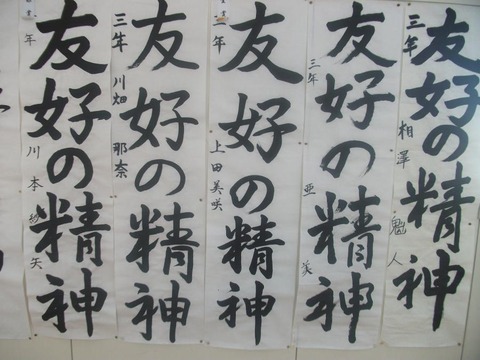 友好の精神
三年 相澤 人
友好の精神
三年 亜美
友好の精神
年 上田美咲
友好の精神
三年 川畑 那奈
友好の精神
年 川本 矢